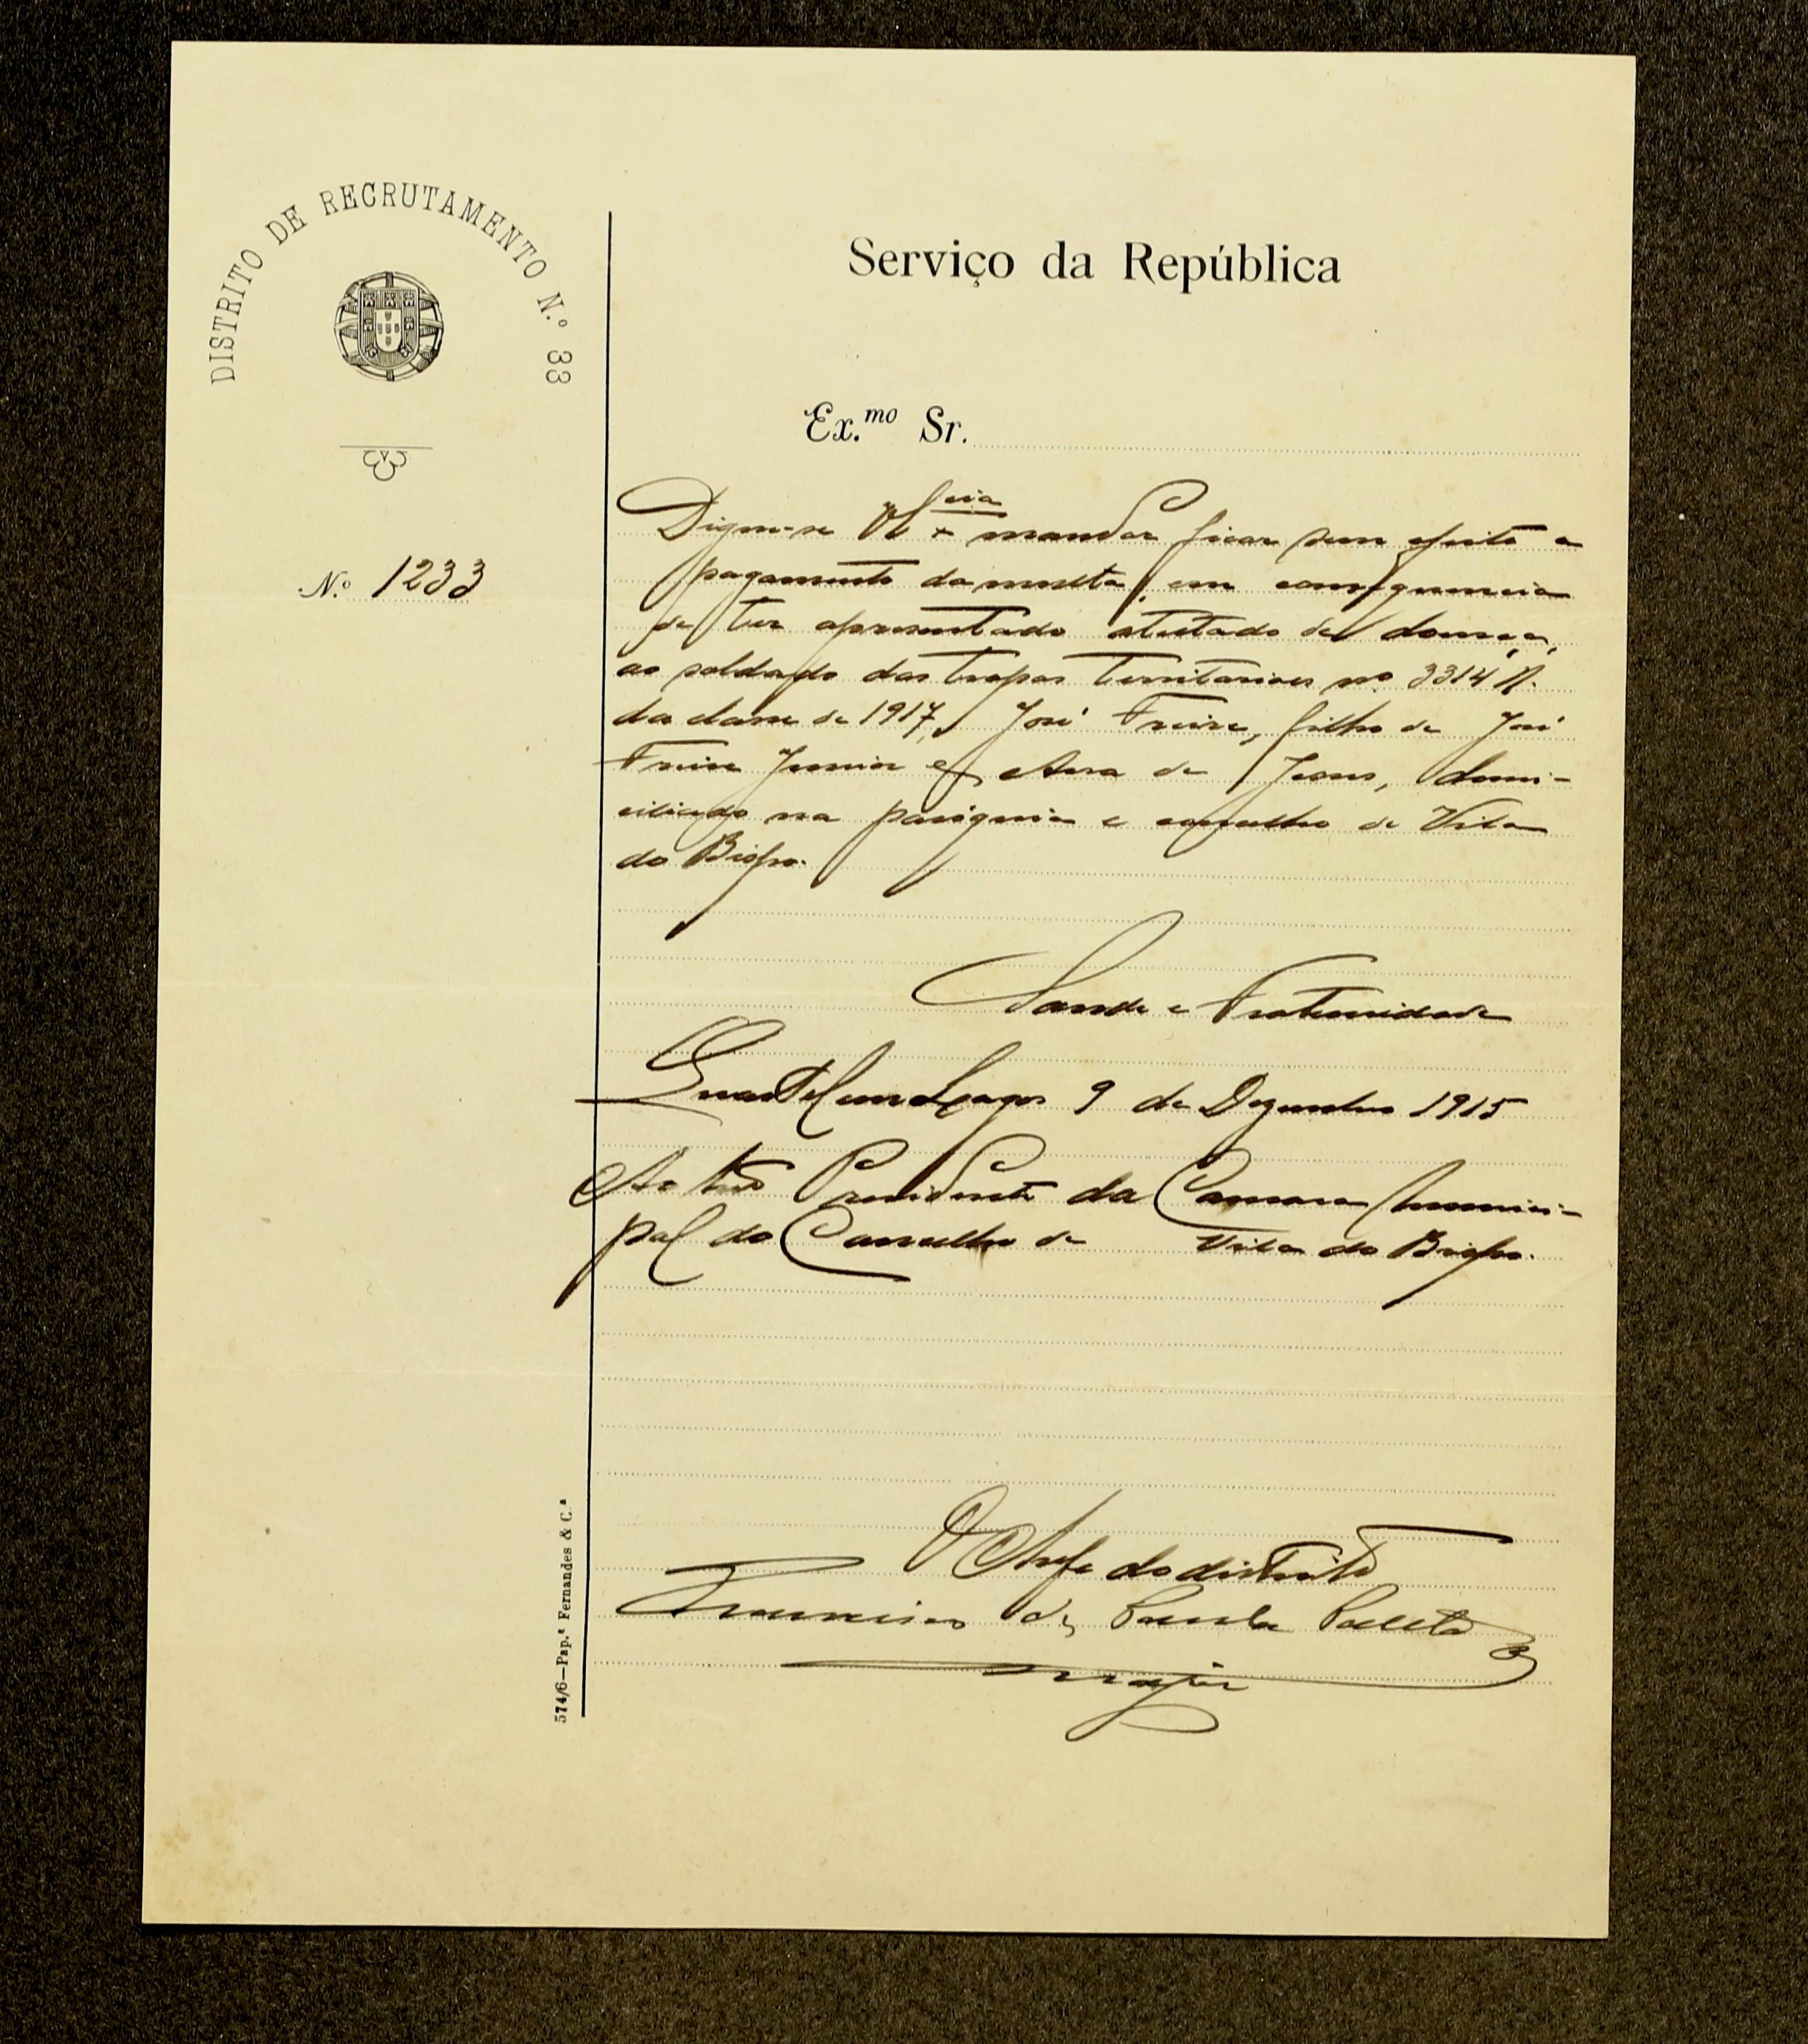 DISTRITO DE RECRUTAMENTO N.º 33
Serviço da República
Ex.mo Sr.
N.º 1233
Digne-se V. Ex.cia mandar ficar sem efeito o
pagamento da multa, em consequencia
de ter apresentado atestado de doença,
ao soldado das tropas territoriaes nº 3314 A.
da classe de 1917, José Freire, filho de José
Freire Junior e de Jesus, domi-
ciliado na paroquia e concelho de Vila
do Bispo.
Saude e Fraternidade
Quartel em Lagos 9 de Dezembro 1915
Ao Presidente da Camara Munici-
pal do Concelho de Vila do Bispo.
O Chefe do distrito
Francisco de Paula
major
574/6—Pap.ª Fernandes & C.ª